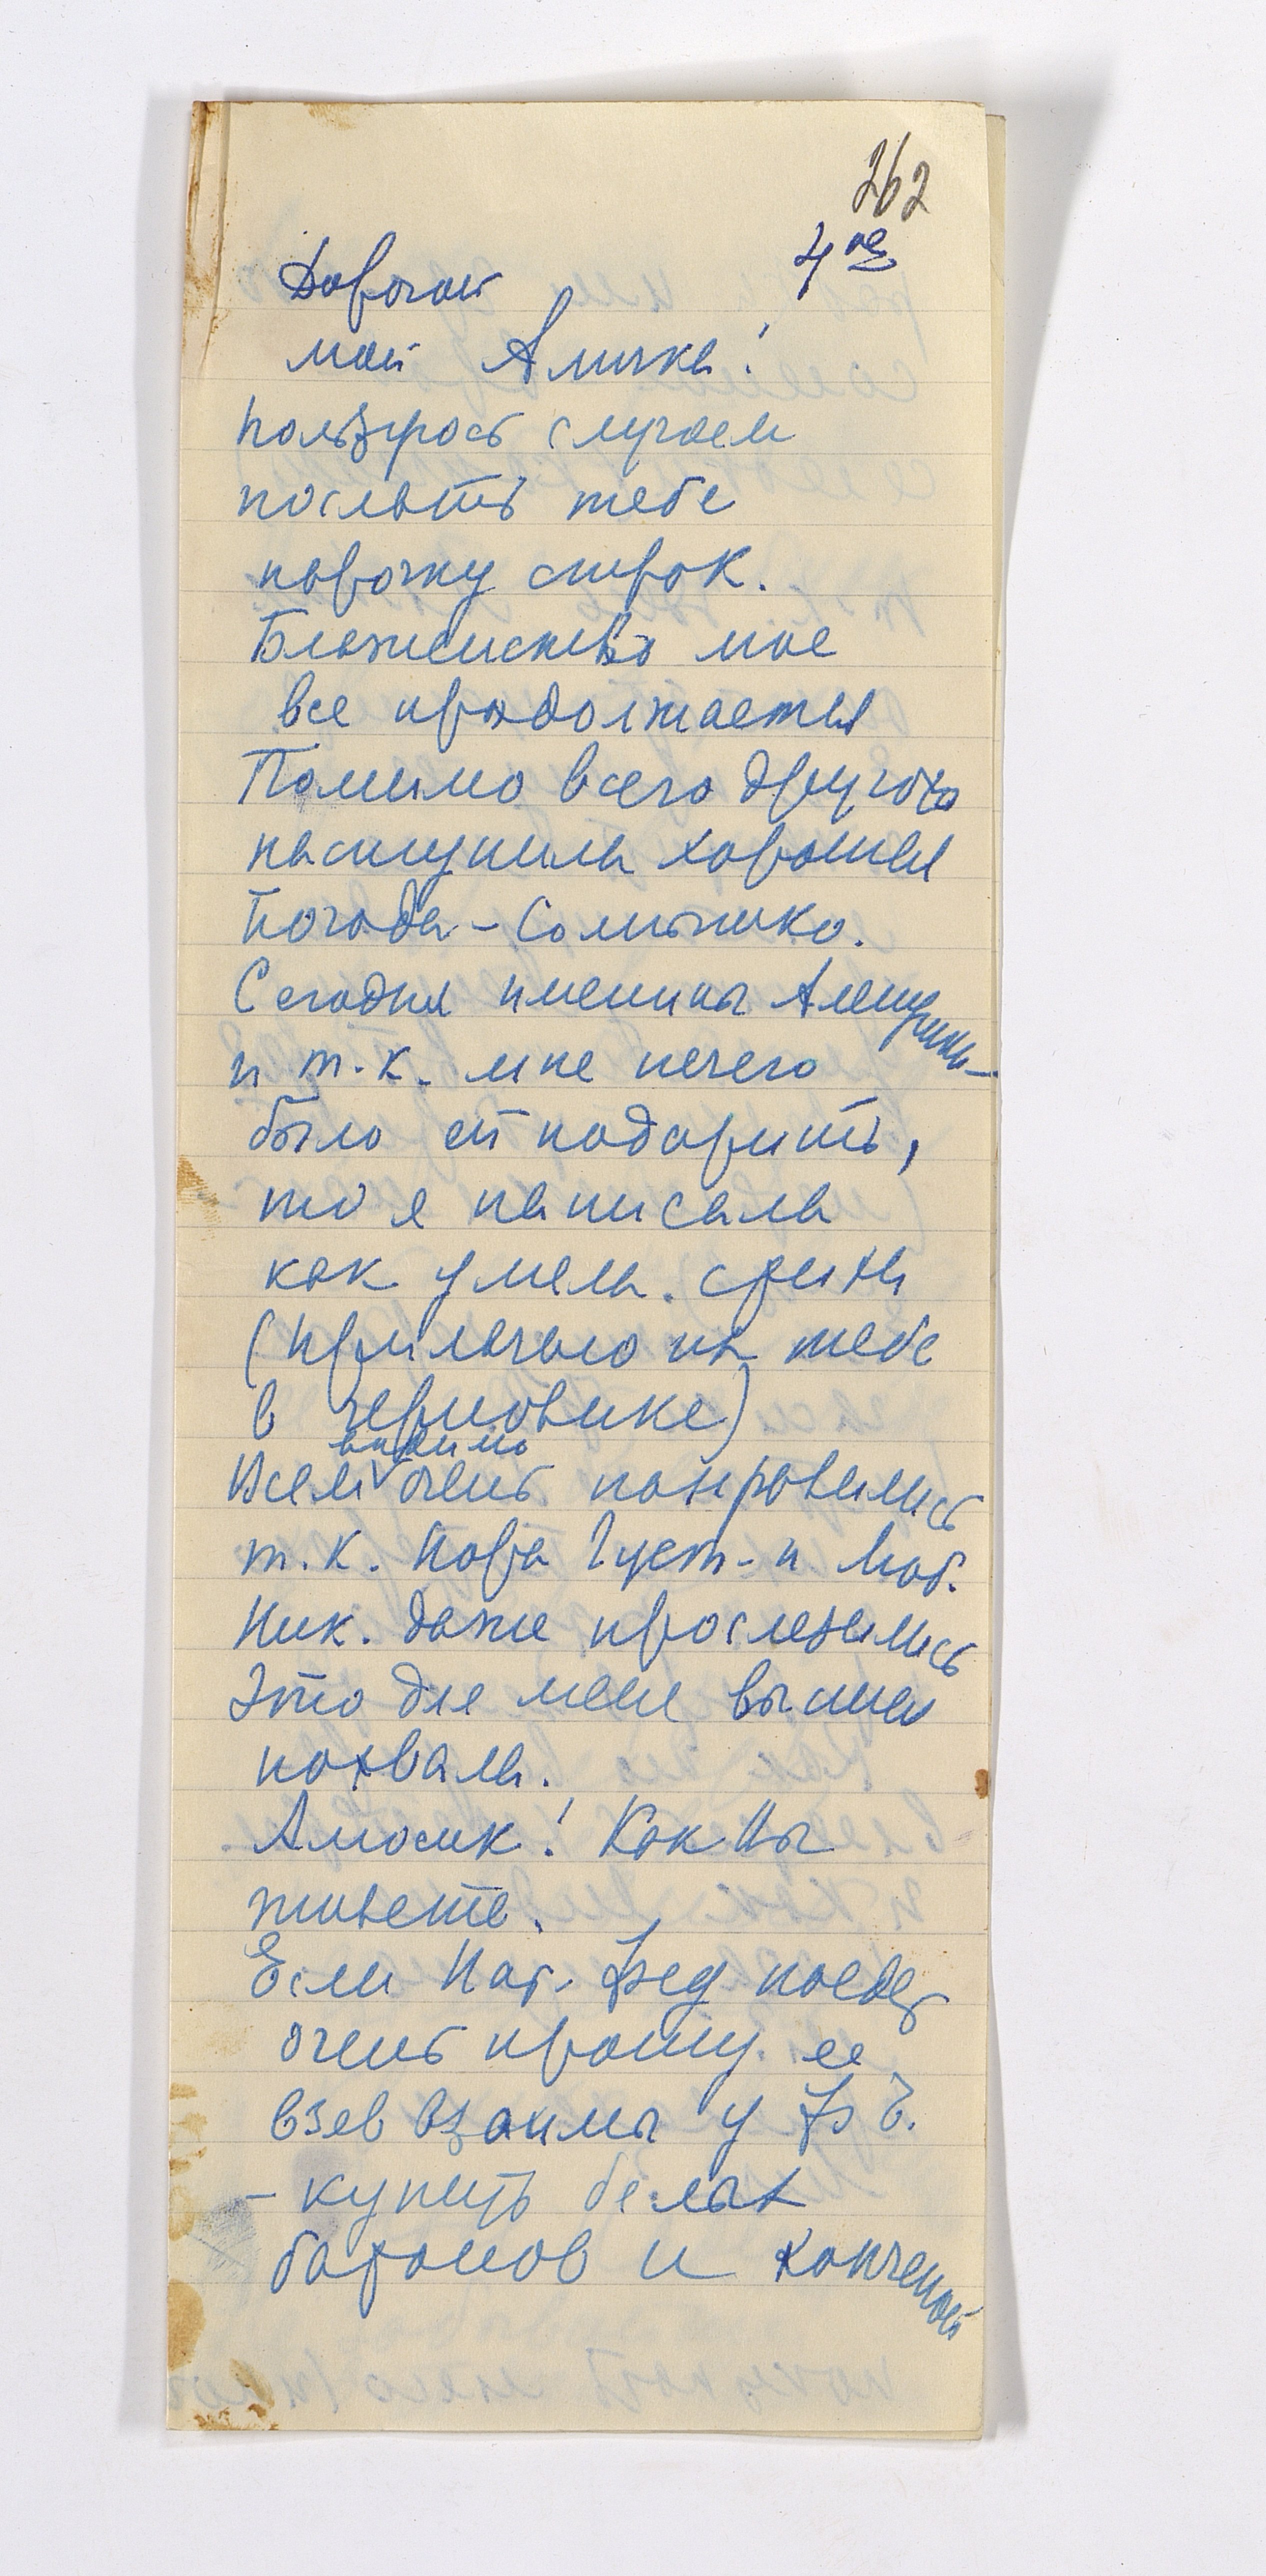 262
4го
Дорогой
мой Аличка!
Пользуюсь случаем
послать тебе
парочку строк.
Блаженство мое
все продолжается
Помимо всего другого
наступила хорошая
погода – солнышко.
Сегодня именины
и т.к. мне нечего
было ей подарить,
то я написала
как умела. стихи
(прилагаю их тебе
в черновике)
видимо
Всем очень понравились
т.к. Нора Густ. и
Ник. даже прослезились
Это для меня высшая
похвала.
Как Вы
живете.
Если Нат. Фед поедет
очень прошу ее
взяв взаймы у
– купить белых
батонов и копченой